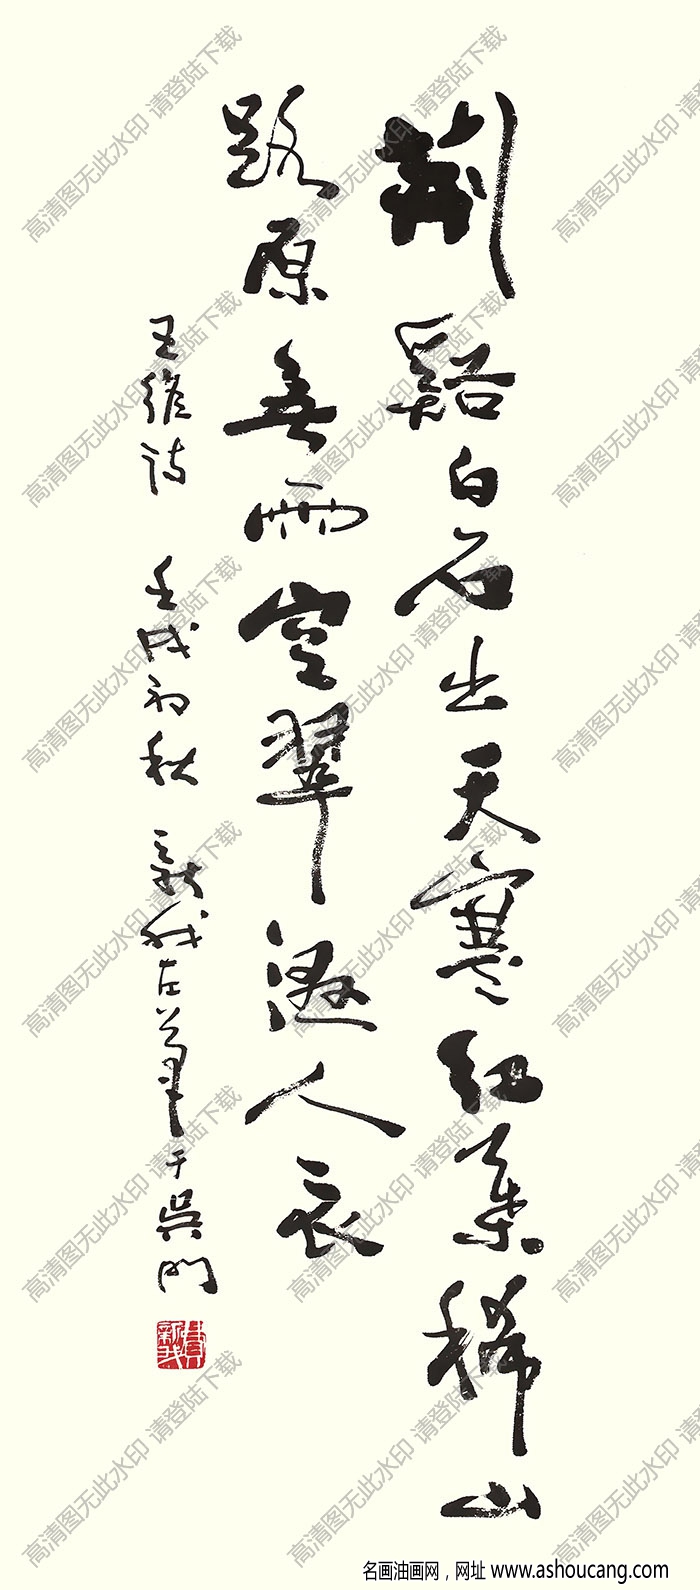 荆谿白石出天寒紅葉稀山
路原無雨空翠濕人衣
王維詩 壬戌初秋 新我左筆于吳門
費新我
高清图无此水印 请登陆下载
名画油画网，网址 www.ashoucang.com